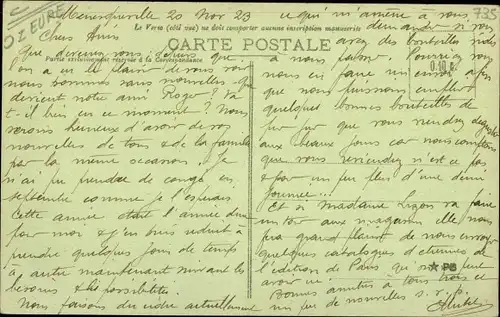 Menesqueville 20 Nov 23
OZEURE
735
Chers Amis
Que devenez-vous depuis que
on a eu le plaisir de vous voir
nous sommes sans nouvelles. Que
devient notre ami Roger? Va
t-il bien en ce moment? Nous
serons heureux d'avoir de vos
nouvelles de tous & de la famille
par la même occasion. Je
n'ai pu prendre de congé en
septembre comme je l'espérais
Cette année était l'année dure
pour moi & j'en suis réduit à
prendre quelques jours de temps
à autre maintenant suivant les
besoins & les possibilités.
Nous faisons du cidre actuellement
Le Verso (côté vue) ne doit comporter aucune inscription manuscrite
CARTE POSTALE
Partie exclusivement réservée à la Correspondance
ce qui m'amène à vous
demander si vous
avez des bouteilles vides
à nous passer. Pourriez vous
nous en faire un envoi afin
que nous puissions remplir
quelques bonnes bouteilles de
pur jus que vous viendrez déguster
aux beaux jours car nous comptons
que vous reviendrez n'est ce pas
& pour un peu plus d'une demi
journée!
Et si madame va faire
un tour aux magasins elle nous
fera grand plaisir de nous envoyer
quelques catalogues d'étrennes de
l'édition de Paris
avoir ici
Bonnes amitiés à tous trois et
un peu de nouvelles s.v.p.
0.10 €
✱ PB